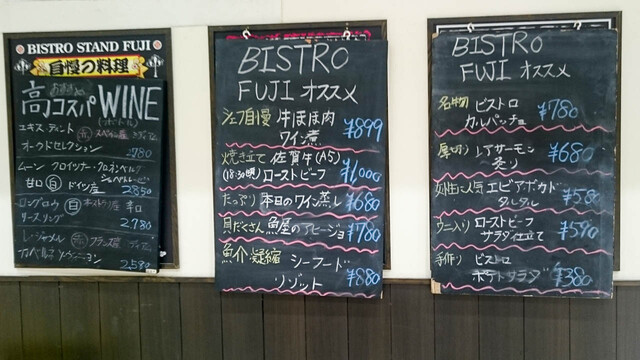 BISTRO STAND FUJI
自慢の料理
高コスパ WINE
(ボトル)
エキステント 赤 スペイン産
オークドセレクション
2780
ムーン クロイツナー クローネンベルク
甘口 白 ドイツ産
2850
ロングロウ 白 辛口
リースリング
2,780
赤 フランス産
カベルネ ソーヴィニヨン
2,580
BISTRO
FUJI オススメ
シェフ自慢 牛ほほ肉
ワイン煮
¥899
焼き立て 佐賀牛(A5)
(18:30頃) ローストビーフ
¥1,000
たっぷり 本日のワイン蒸し ¥680
具だくさん 魚屋のアヒージョ ¥780
魚介凝縮 シーフード
リゾット
¥880
BISTRO
FUJI オススメ
名物 ビストロ
カルパッチョ
¥780
厚切り レアサーモン
炙り
¥680
女性に人気 エビアボカド
タルタル
¥580
ローストビーフ
サラダ仕立て
¥590
手作り ビストロ
ポテトサラダ
¥380